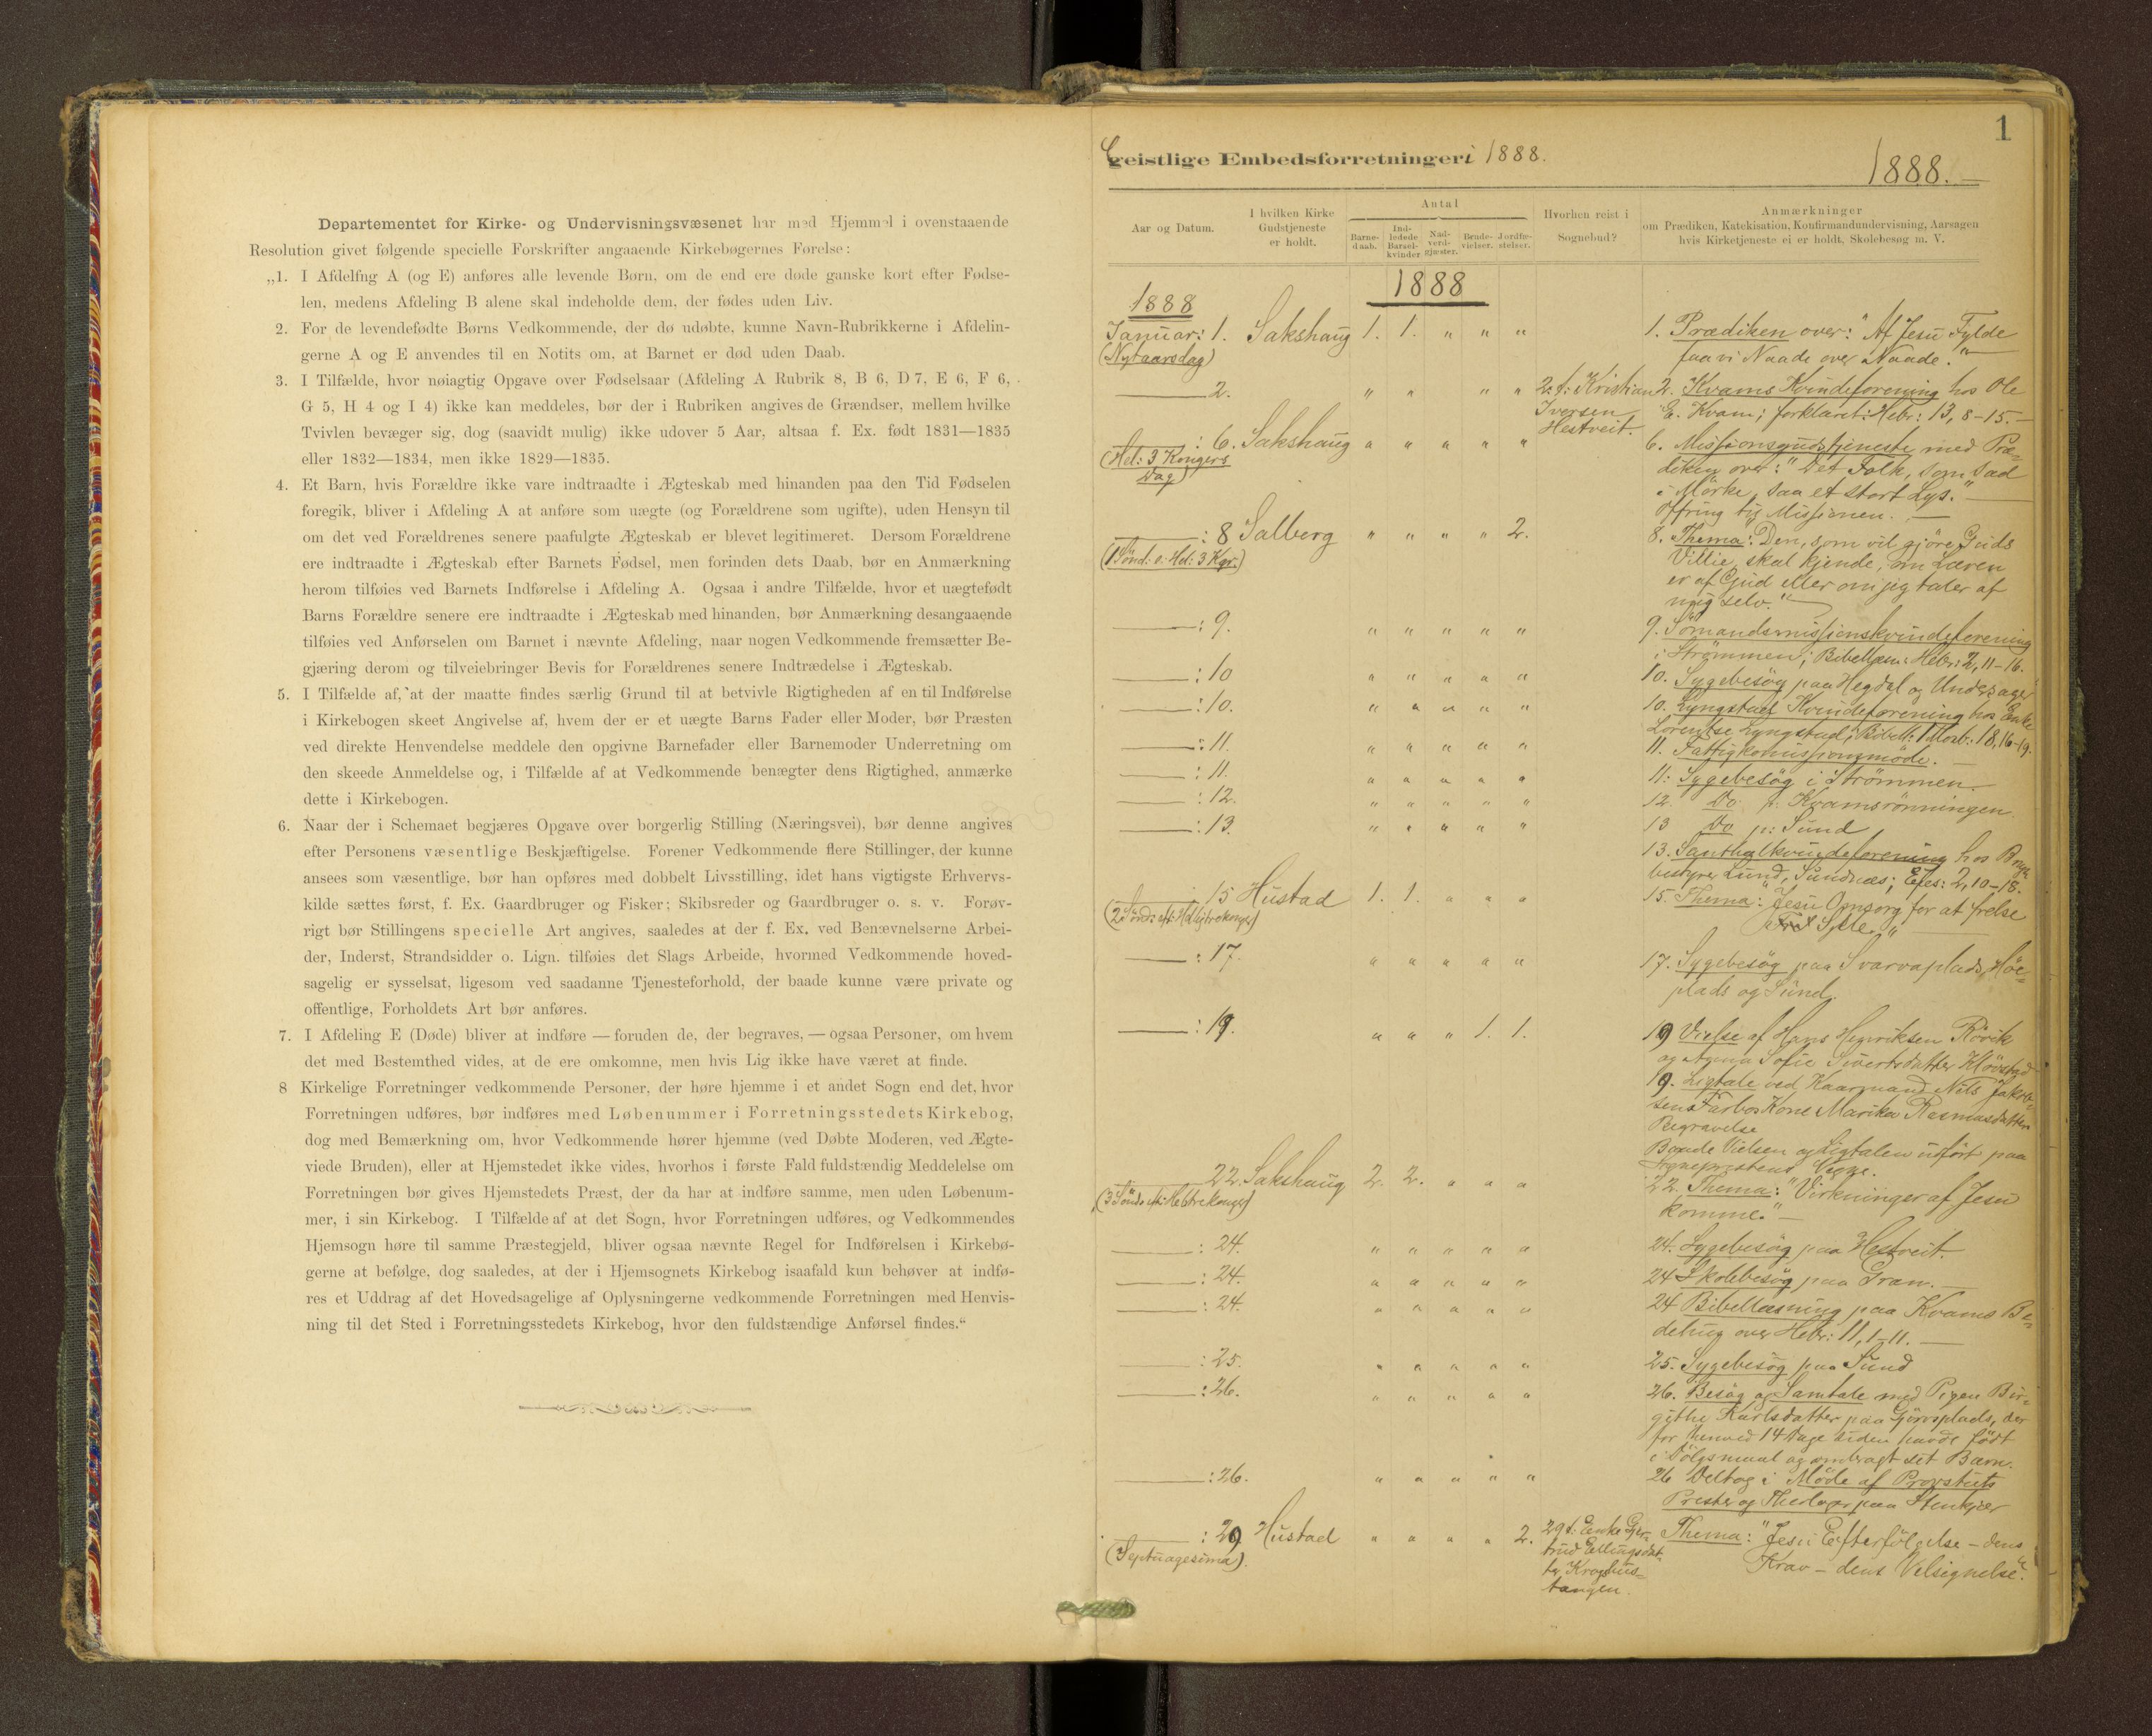 Departementet for Kirke- og Undervisningsvæsenet har med Hjemmel i ovenstaaende
Resolution givet følgende specielle Forskrifter angaaende Kirkebøgernes Førelse:
„1. I Afdelfng A (og E) anføres alle levende Børn, om de end ere døde ganske kort efter Fødse-
len, medens Afdeling B alene skal indeholde dem, der fødes uden Liv.
2. For de levendefødte Børns Vedkommende, der dø udøbte, kunne Navn-Rubrikkerne i Afdelin-
gerne A og E anvendes til en Notits om, at Barnet er død uden Daab.
3. I Tilfælde, hvor nøiagtig Opgave over Fødselsaar (Afdeling A Rubrik 8, B 6, D 7, E 6, F 6,
G 5, H 4 og I 4) ikke kan meddeles, bør der i Rubriken angives de Grændser, mellem hvilke
Tvivlen bevæger sig, dog (saavidt mulig) ikke udover 5 Aar, altsaa f. Ex. født 1831—1835
eller 1832—1834, men ikke 1829—1835.
4. Et Barn, hvis Forældre ikke vare indtraadte i Ægteskab med hinanden paa den Tid Fødselen
foregik, bliver i Afdeling A at anføre som uægte (og Forældrene som ugifte), uden Hensyn til
om det ved Forældrenes senere paafulgte Ægteskab er blevet legitimeret. Dersom Forældrene
ere indtraadte i Ægteskab efter Barnets Fødsel, men forinden dets Daab, bør en Anmærkning
herom tilføies ved Barnets Indførelse i Afdeling A. Ogsaa i andre Tilfælde, hvor et uægtefødt
Barns Forældre senere ere indtraadte i Ægteskab med hinanden, bør Anmærkning desangaaende
tilføies ved Anførselen om Barnet i nævnte Afdeling, naar nogen Vedkommende fremsætter Be-
gjæring derom og tilveiebringer Bevis for Forældrenes senere Indtrædelse i Ægteskab.
5. I Tilfælde af, at der maatte findes særlig Grund til at betvivle Rigtigheden af en til Indførelse
i Kirkebogen skeet Angivelse af, hvem der er et uægte Barns Fader eller Moder, bør Præsten
ved direkte Henvendelse meddele den opgivne Barnefader eller Barnemoder Underretning om
den skeede Anmeldelse og, i Tilfælde af at Vedkommende benægter dens Rigtighed, anmærke
dette i Kirkebogen.
6. Naar der i Schemaet begjæres Opgave over borgerlig Stilling (Næringsvei), bør denne angives
efter Personens væsentlige Beskjæftigelse. Forener Vedkommende flere Stillinger, der kunne
ansees som væsentlige, bør han opføres med dobbelt Livsstilling, idet hans vigtigste Erhvervs-
kilde sættes først, f. Ex. Gaardbruger og Fisker; Skibsreder og Gaardbruger o. s. v. Forøv-
rigt bør Stillingens specielle Art angives, saaledes at der f. Ex. ved Benævnelserne Arbei-
der, Inderst, Strandsidder o. Lign. tilføies det Slags Arbeide, hvormed Vedkommende hoved-
sagelig er sysselsat, ligesom ved saadanne Tjenesteforhold, der baade kunne være private og
offentlige, Forholdets Art bør anføres.
7. I Afdeling E (Døde) bliver at indføre — foruden de, der begraves, — ogsaa Personer, om hvem
det med Bestemthed vides, at de ere omkomne, men hvis Lig ikke have været at finde.
8 Kirkelige Forretninger vedkommende Personer, der høre hjemme i et andet Sogn end det, hvor
Forretningen udføres, bør indføres med Løbenummer i Forretningsstedets Kirkebog,
dog med Bemærkning om, hvor Vedkommende hører hjemme (ved Døbte Moderen, ved Ægte-
viede Bruden), eller at Hjemstedet ikke vides, hvorhos i første Fald fuldstændig Meddelelse om
Forretningen bør gives Hjemstedets Præst, der da har at indføre samme, men uden Løbenum-
mer, i sin Kirkebog. I Tilfælde af at det Sogn, hvor Forretningen udføres, og Vedkommendes
Hjemsogn høre til samme Præstegjeld, bliver ogsaa nævnte Regel for Indførelsen i Kirkebø-
gerne at befølge, dog saaledes, at der i Hjemsognets Kirkebog isaafald kun behøver at indfø-
res et Uddrag af det Hovedsagelige af Oplysningerne vedkommende Forretningen med Henvis-
ning til det Sted i Forretningsstedets Kirkebog, hvor den fuldstændige Anførsel findes.“
1
Geistlige Embedsforretninger i 1888.
1888.
Aar og Datum.
I hvilken Kirke
Gudstjeneste
er holdt.
Antal
Barne-
daab.
Ind-
ledede
Barsel-
kvinder
Nad-
verd-
gjæster.
Bende-
vielser.
Jordfæ-
stelser.
Hvorhen reist i
Sognebud?
Anmærkninger
om Prædiken, Katekisation, Konfirmandundervisning, Aarsagen
hvis Kirketjeneste ei er holdt, Skolebesøg m. V.
1888
1888
Januar: 1. Sakshaug 1. 1. " " " 1. Prædiken over: "Af Jesu Fylde
(Nytaarsdag) faa vi Naade over Naade."
2. " " " " 2: f: Kristian 2. Kvams Kvindeforening hos Ole
Iversen E. Kvam; forklaret: Hebr: 13, 8-15.
Hestveit.
: 6. Sakshaug " " " " " 6. Missionsgudstjeneste med Præ-
(Hel: 3 Kongers diken over: "Det Folk, som sad
Dag) i Mörke, saa et stort Lys."
Offring til Missionen.
: 8 Salberg " " " " 2. 8. Thema: Den, som vil gjöre Guds
(1 Sönd: e: Hel: 3 Kgr:) Villie, skal kjende, om Læren
er af Gud eller om jeg taler af
mig selv."
: 9. " " " " " 9. Sömandsmissionskvindeforening
i Strömmen; Bibellæsn: Hebr: 2, 11-16.
: 10 " " " " " 10. Sygebesög paa Hegdal og
: 10. " " " " " 10. Lyngstad Kvindeforening hos Enke
Lorentse Lyngstad; 18, 16-19.
: 11. " " " " " 11. Fattigkomissionsmöde.
: 11. " " " " " 11: Sygebesög i Strömmen.
: 12. " " " " " 12. Do p: Kvamsrönningen.
: 13. " " " " " 13 Do p: Sund
13. Santhalkvindeforening hos
bestyrer Lund, Sundnæs; Efes: 2, 10-18.
15 Hustad 1. 1. " " " 15. Thema: "Jesu Omsorg for at frelse
Sjæle."
: 17. " " " " " 17. Sygebesög paa Svarvaplads,
plads og Sund.
: 19. " " " 1. 1. 19 Vielse af Hans Henriksen Rövik
og Agnea Sofie Sivertsdatter Klövstad
19. Ligtale ved Kaarmand Nils Jakob-
sens Kone Marika Rasmusdatters
Begravelse
Baade Vielsen og Ligtalen udfört paa
Sogneprestens Vegne.
22. Sakshaug 2. 2. " " " 22. Thema: "Virkninger af Jesu
komme."
: 24. " " " " " 24. Sygebesög paa Hestveit.
: 24. " " " " " 24 Skolebesög paa Gran.
: 24. " " " " " 24 Bibellæsning paa Kvams Be-
dehus over Hebr: 11, 1-11.
: 25. " " " " " 25. Sygebesög paa Sund
: 26. " " " " " 26. Besög og Samtale med Pigen Bir-
githe Karlsdatter paa der
for henved 14 Dage siden havde födt
i Dölgsmaal og ombragt sit Barn.
: 26. " " " " " 26 Deltog i Möde af Provstiets
Prester og Theologer paa Stenkjær
: 29 Hustad " " " " 2. 29 f: Enke Ger- Thema: "Jesu Efterfölgelse - dens
(Septuagesima). trud Ellingsdat- Krav - dens Velsignelse."
ter Kroghus-
tangen.